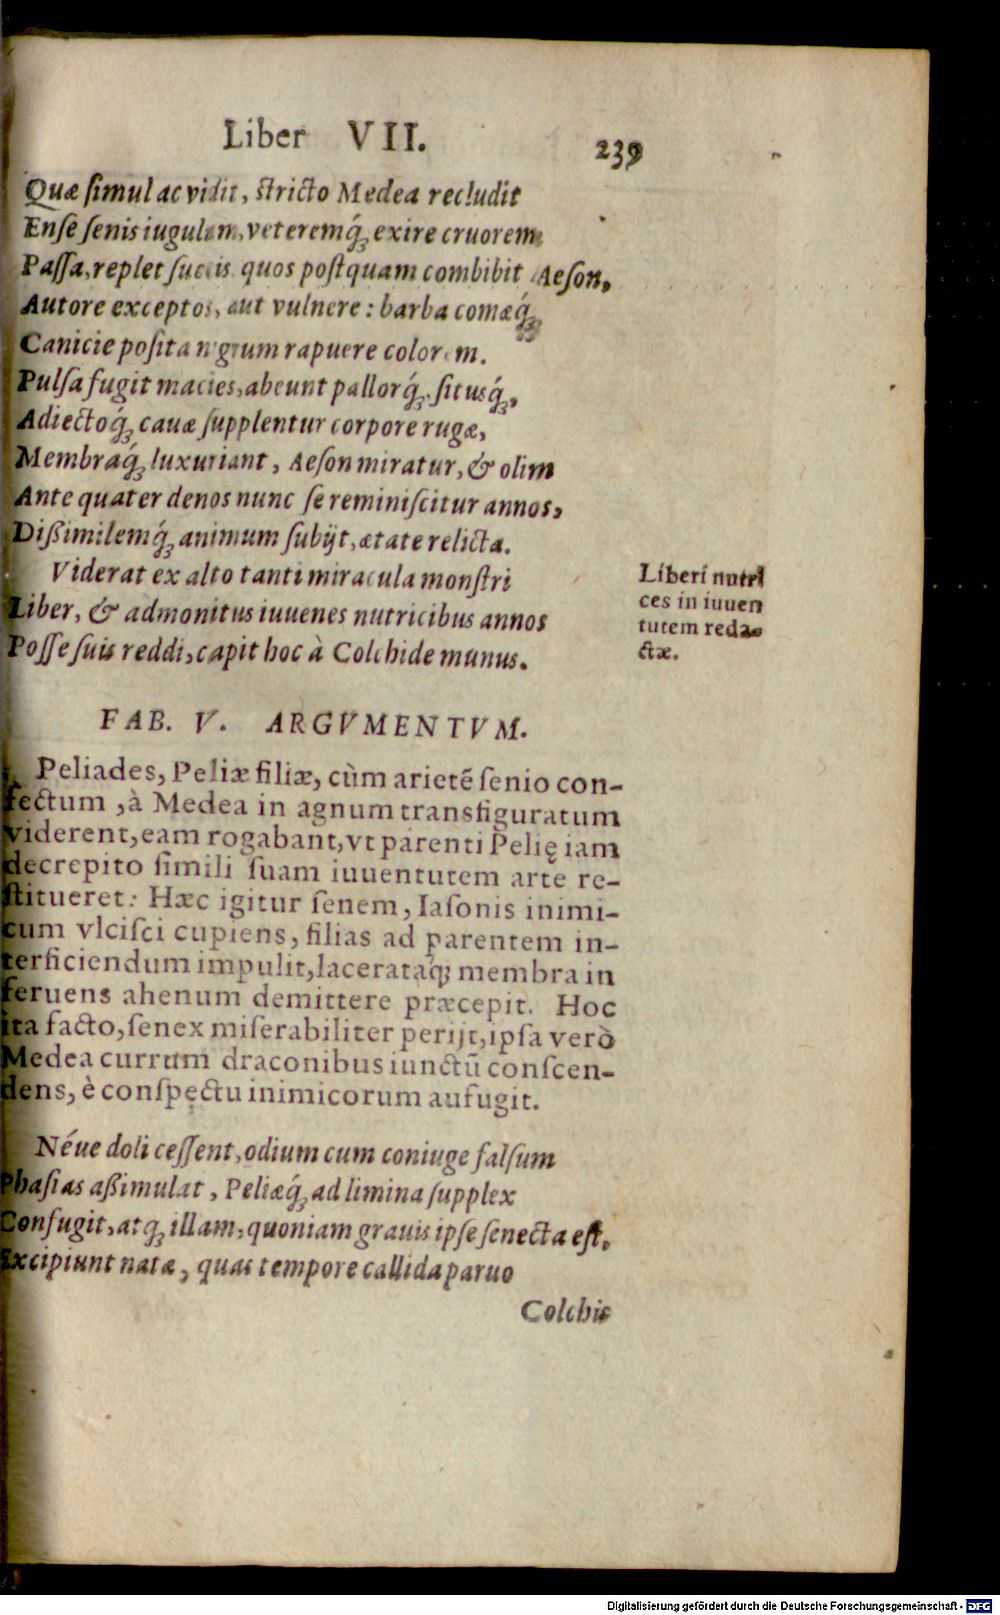 Liber VII. 239
Quæ ſimul ac vidit, ſtricto Medea recludit
Enſe ſenis iugulum, veteremq́ꝫ exire cruorem
Paſſa, replet ſuccis. quos poſtquam combibit Aeſon,
Autore exceptos, aut vulnere: barba comæq́ꝫ
Canicie poſita nigrum rapuere colorem.
Pulſa fugit macies, abeunt pallorq́ꝫ. ſitusq́ꝫ,
Adiectoq́ꝫ cauæ ſupplentur corpore rugæ,
Membraq́ꝫ luxuriant, Aeſon miratur, & olim
Ante quater denos nunc ſe reminiſcitur annos,
Dißimilemq́ꝫ animum ſubijt, ætate relicta.
Viderat ex alto tanti miracula monſtri
Liber, & admonitus iuuenes nutricibus annos
Poſſe ſuis reddi, capit hoc à Colchide munus.
Liberi nutri
ces in iuuen
tutem reda-
ctæ.
FAB. V. ARGVMENTVM.
Peliades, Peliæ filiæ, cùm arietē ſenio con-
fectum, à Medea in agnum transfiguratum
viderent, eam rogabant, vt parenti Pelię iam
decrepito ſimili ſuam iuuentutem arte re-
ſtitueret: Hæc igitur ſenem, Iaſonis inimi-
cum vlciſci cupiens, filias ad parentem in-
terficiendum impulit, lacerataq́ꝫ membra in
feruens ahenum demittere præcepit. Hoc
ita facto, ſenex miſerabiliter perijt, ipſa verò
Medea currum draconibus iunctū conſcen-
dens, è conſpectu inimicorum aufugit.
Néue doli ceſſent, odium cum coniuge falſum
Phaſias aßimulat, Peliæq́ꝫ ad limina ſupplex
Confugit, atqꝫ illam, quoniam grauis ipſe ſenecta eſt,
Excipiunt natæ, quas tempore callida paruo
Colchis
Digitalisierung gefördert durch die Deutsche Forschungsgemeinschaft - DFG